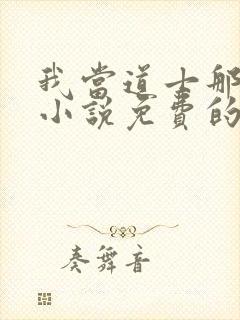 我當道士那
小說免費的
奏舞音